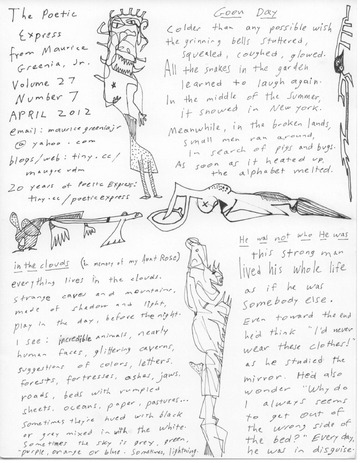 The Poetic
Express
from Maurice
Greenia, Jr.
Volume 27
Number 7
APRIL 2012
email: mauricegreeniajr
@ yahoo . com
blogs/web: tiny.cc/
maugre vdm
20 years of Poetic Express:
tiny.cc/poeticexpress
Goon Day
Colder than any possible wish
the grinning bells stuttered,
squealed, coughed, glowed.
All the snakes in the garden
learned to laugh again.
In the middle of the summer,
it snowed in New York.
Meanwhile, in the broken lands,
small men ran around,
in search of pigs and bugs.
As soon as it heated up,
the alphabet melted.
in the clouds (In memory of my Aunt Rose)
everything lives in the clouds.
strange caves and mountains,
made of shadow and light,
play in the day, before the night.
I see: incredible animals, nearly
human faces, glittering caverns,
suggestions of colors, letters.
forests, fortresses, ashes, jaws.
roads, beds with rumpled
sheets, oceans, paper, pastures...
sometimes they're hued with black
or grey mixed in with the white.
Sometimes the sky is grey, green,
purple, orange or blue. Sometimes, lightning
He was not who He was
this strong man
lived his whole life
as if he was
somebody else.
Even toward the end
he'd think "I'd never
wear these clothes!"
as he studied the
mirror. He'd also
wonder "Why do
I always seem
to get out of
the wrong side of
the bed?" Every day,
he was in disguise.